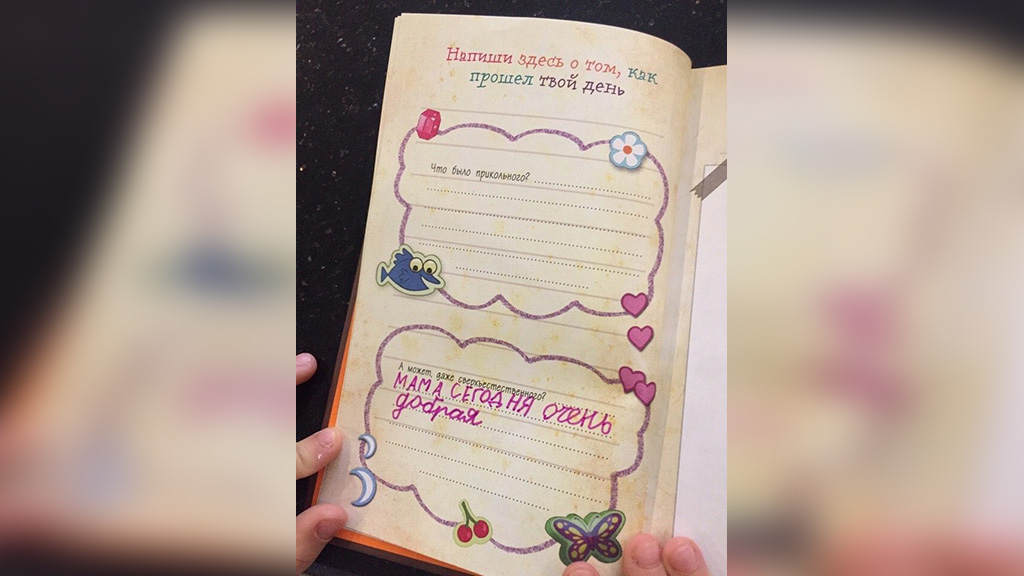 Напиши здесь о том, как
прошел твой день
Что было прикольного?
А может, даже сверхъестественного?
МАМА СЕГОДНЯ ОЧЕНЬ
добрая